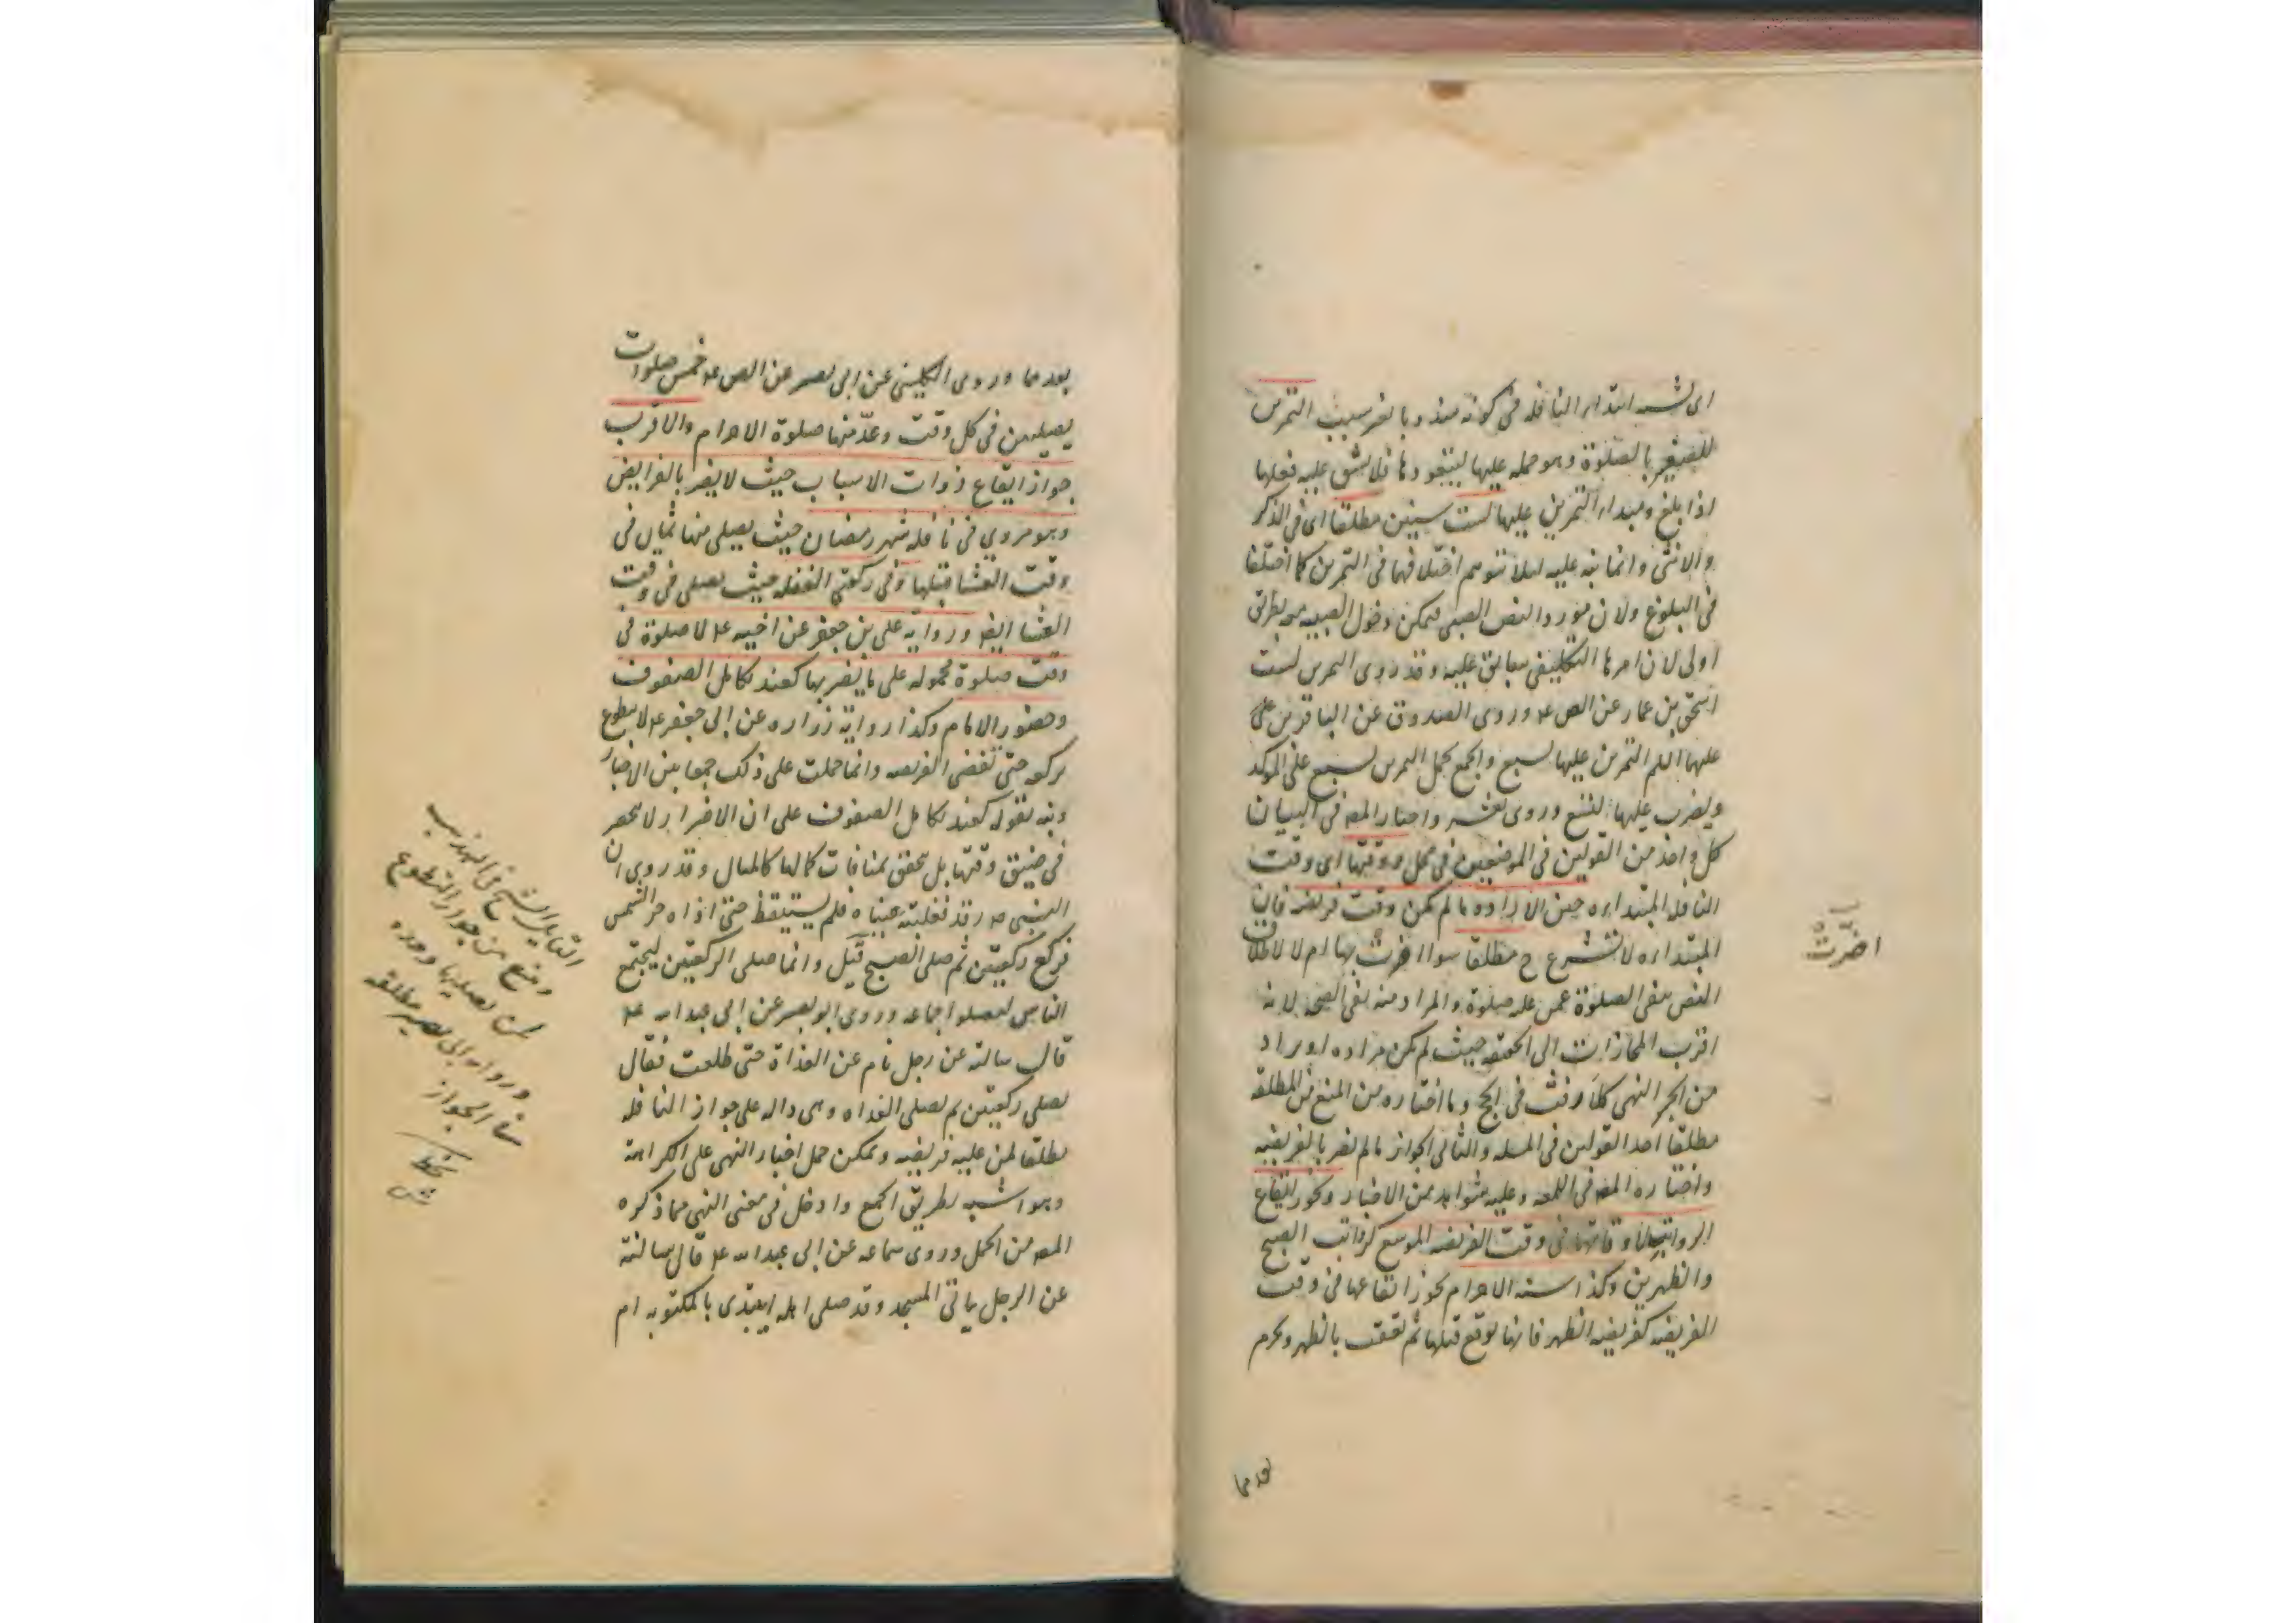 اى شبه ابتداء النافلة فى كونه مندوبا لغير سبب التمرين
للصغير بالصلوة وهو حمله عليها ليتعود بها فلا يشق عليه فعلها
اذا بلغ ومبداء التمرين عليها لست سنين مطلقا اى فى الذكر
والانثى وانما نبه عليه لئلا يتوهم اختلافهما فى التمرين كما اختلفا
فى البلوغ ولان مورد النص الصبى فيمكن دخول الصبيه بطريق
اولى لان امرها التكليفى سابق عليه وقد روى التمرين لست
اسحق بن عمار عن الص عه وروى الصدوق عن الباقرين
عليهما السلم التمرين عليها لسبع والجمع بحمل التمرين لسبع على الموكد
ويضرب عليها لتسع وروى لعشر واختار المصه فى البيان
كل واحد من القولين فى الموضعين فى محل ووقتها اى وقت
النافله المبتداه حين الاراده ما لم يكن وقت فريضه فان
المبتداه لا تشرع ح مطلقا سواء اضرت بها ام لا لاطلاق
النص بنفى الصلوة عمن عليه صلوة والمراد منه نفى الصحه لانه
اقرب المجازات الى الحقيقه حيث لم يكن مراده او يراد
من الخبر النهى كلا رفث فى الحج وما اختاره من المنع من المطلقه
مطلقا احد القولين فى المسله والثانى الجواز ما لم يضر بالفريضه
واختاره المصه فى اللمعه وعليه شواهد من الاخبار ويجوز ايقاع
الرواتب لاوقاتها فى وقت الفريضه الموسع كرواتب الصبح
والظهرين وكذا سنه الاحرام يجوز ايقاعها فى وقت
الفريضه كفريضه الظهر فانها توقع قبلها ثم تعقب بالظهر ويحرم
بعدها
اضرّت
بعدها وروى الكلينى عن ابى بصير عن الص عه خمس صلوات
يصليهن فى كل وقت وعدّ منها صلوة الاحرام والاقرب
جواز ايقاع ذوات الاسباب حيث لا يضر بالفرايض
وهو مروي فى نافله شهر رمضان حيث يصلى منها ثمان فى
وقت العشا قبلها وفى ركعتى الغفله حيث يصلى فى وقت
العشا ايضه ورواية على بن جعفر عن اخيه عه لا صلوة فى
وقت صلوة محموله على ما يضر بها كعند تكامل الصفوف
وحضور الامام وكذا رواية زراره عن ابى جعفر عه لا يتطوع
بركعه حتى تقضى الفريضه وانما حملت على ذلك جمعا بين الاخبار
ونبه بقوله كعند تكامل الصفوف على ان الاضرار لا ينحصر
فى ضيق وقتها بل يتحقق بمنافات كمالها كالمثال وقد روى ان
النبى ص رقد فغلبته عيناه فلم يستيقظ حتى اذاه حر الشمس
فركع ركعتين ثم صلى الصبح قيل وانما صلى الركعتين ليجتمع
الناس ليصلوا جماعه وروى ابو بصير عن ابى عبد الله عه
قال سالته عن رجل نام عن الغداة حتى طلعت فقال
يصلى ركعتين ثم يصلى الغداه وهى داله على جواز النافله
مطلقا لمن عليه فريضه ويمكن حمل اخبار النهى على الكراهة
وهو اشبه بطريق الجمع وادخل فى معنى النهى مما ذكره
المصه من الحمل وروى سماعه عن ابى عبد الله عه قال سالته
عن الرجل ياتى المسجد وقد صلى اهله ايبتدى بالمكتوبه ام
القايل الشيخ فى التهذيب
ومنع من جواز التطوع
لمن يصليها وحده
ورواية ابى بصير مطلقه